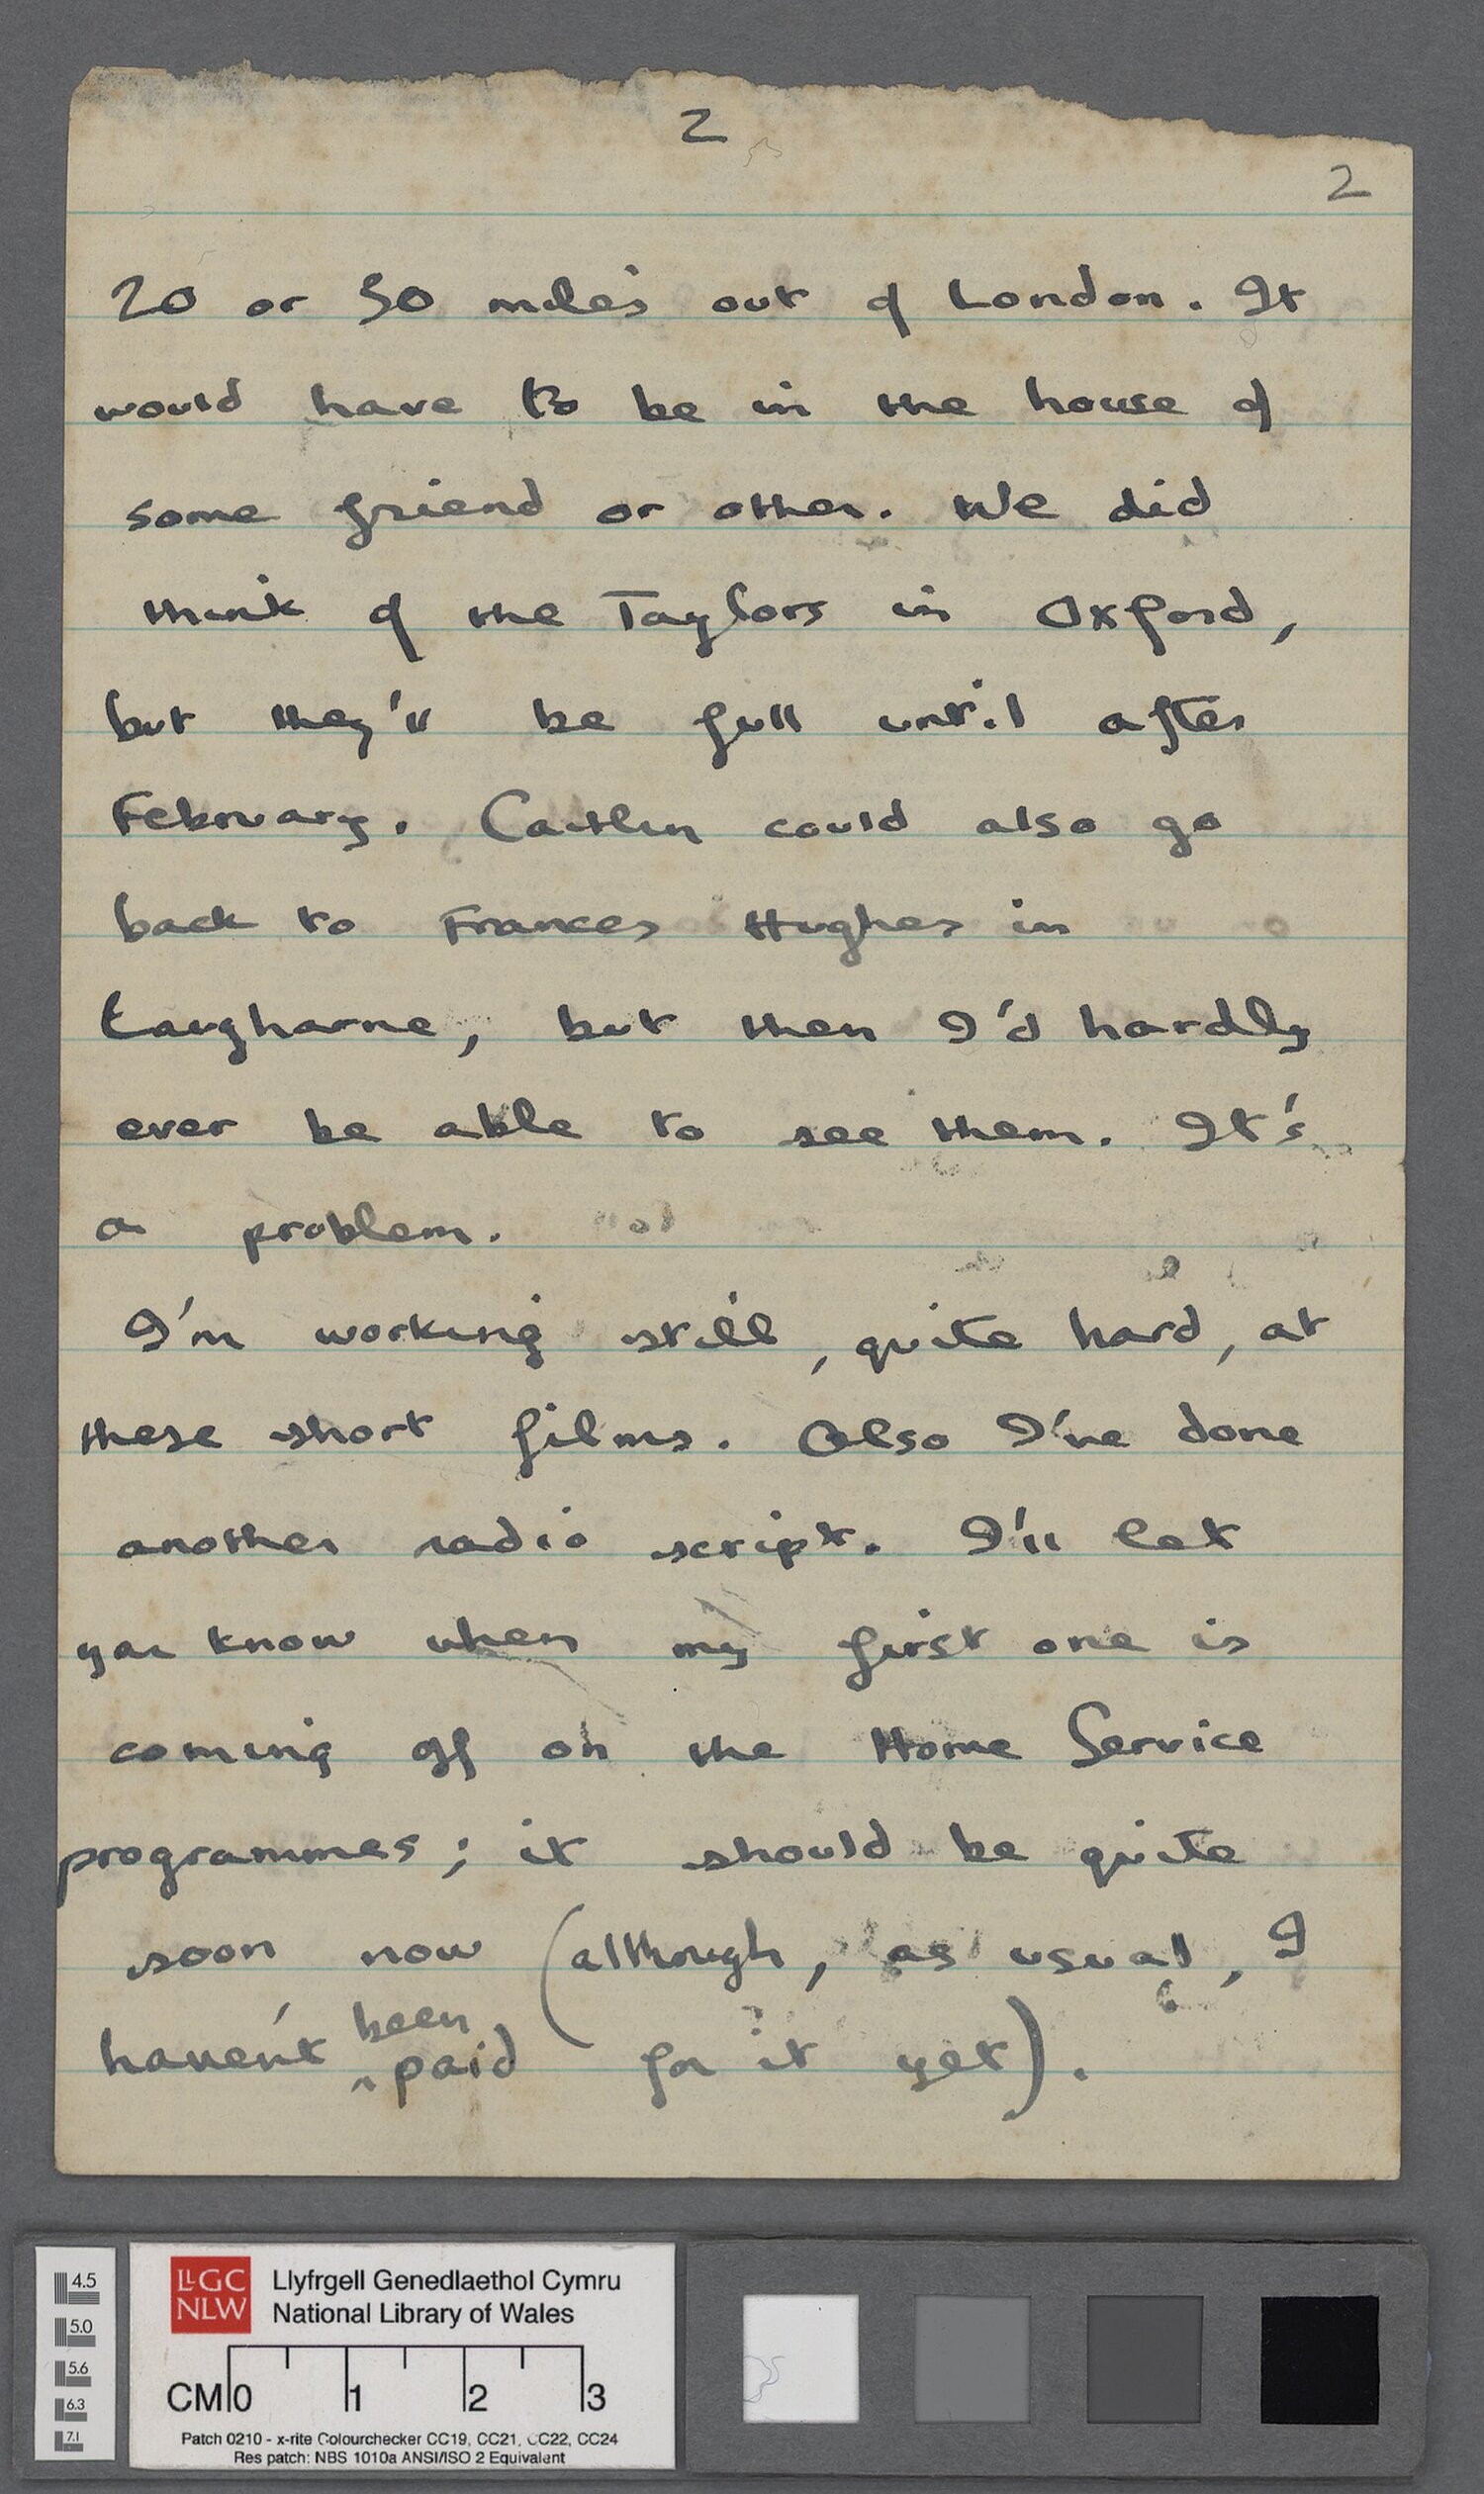 2
2
20 or 30 miles out of London. It
would have to be in the house of
some friend or other. We did
think of the Taylors in Oxford,
but they'll be full until after
February. Caitlin could also go
back to Frances Hughes in
Laugharne, but then I'd hardly
ever be able to see them. It's
a problem.
I'm working still, quite hard, at
these short films. Also I've done
another radio script. I'll let
you know when my first one is
coming off on the Home Service
programmes; it should be quite
soon now (although, as usual, I
haven't been paid for it yet).
4.5
5.0
5.6
6.3
7.1
LLGC
NLW
Llyfrgell Genedlaethol Cymru
National Library of Wales
CM 0 1 2 3
Patch 0210 - x-rite Colourchecker CC19, CC21, CC22, CC24
Res patch: NBS 1010a ANSI/ISO 2 Equivalent